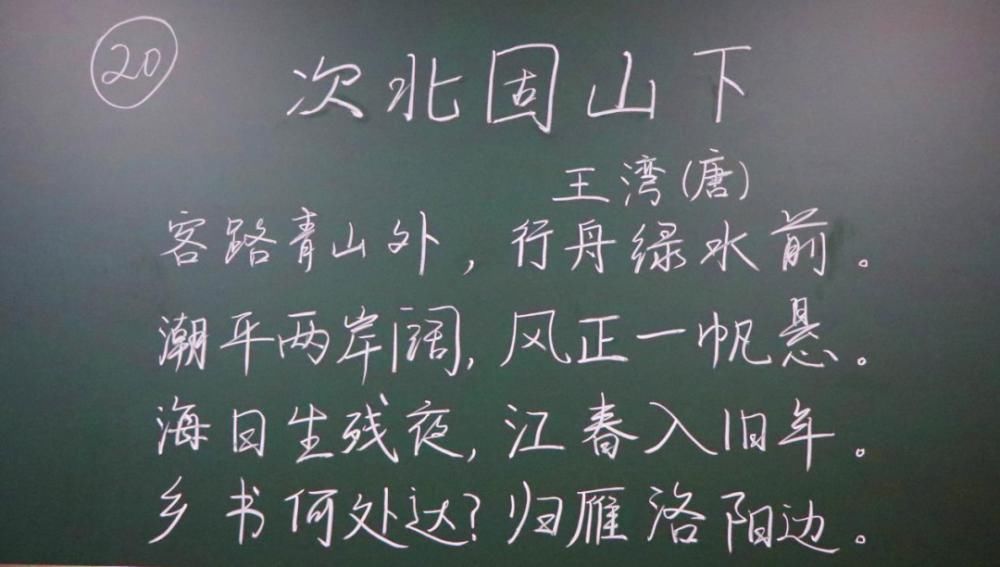 20
次北固山下
王湾(唐)
客路青山外，行舟绿水前。
潮平两岸阔，风正一帆悬。
海日生残夜，江春入旧年。
乡书何处达？归雁洛阳边。